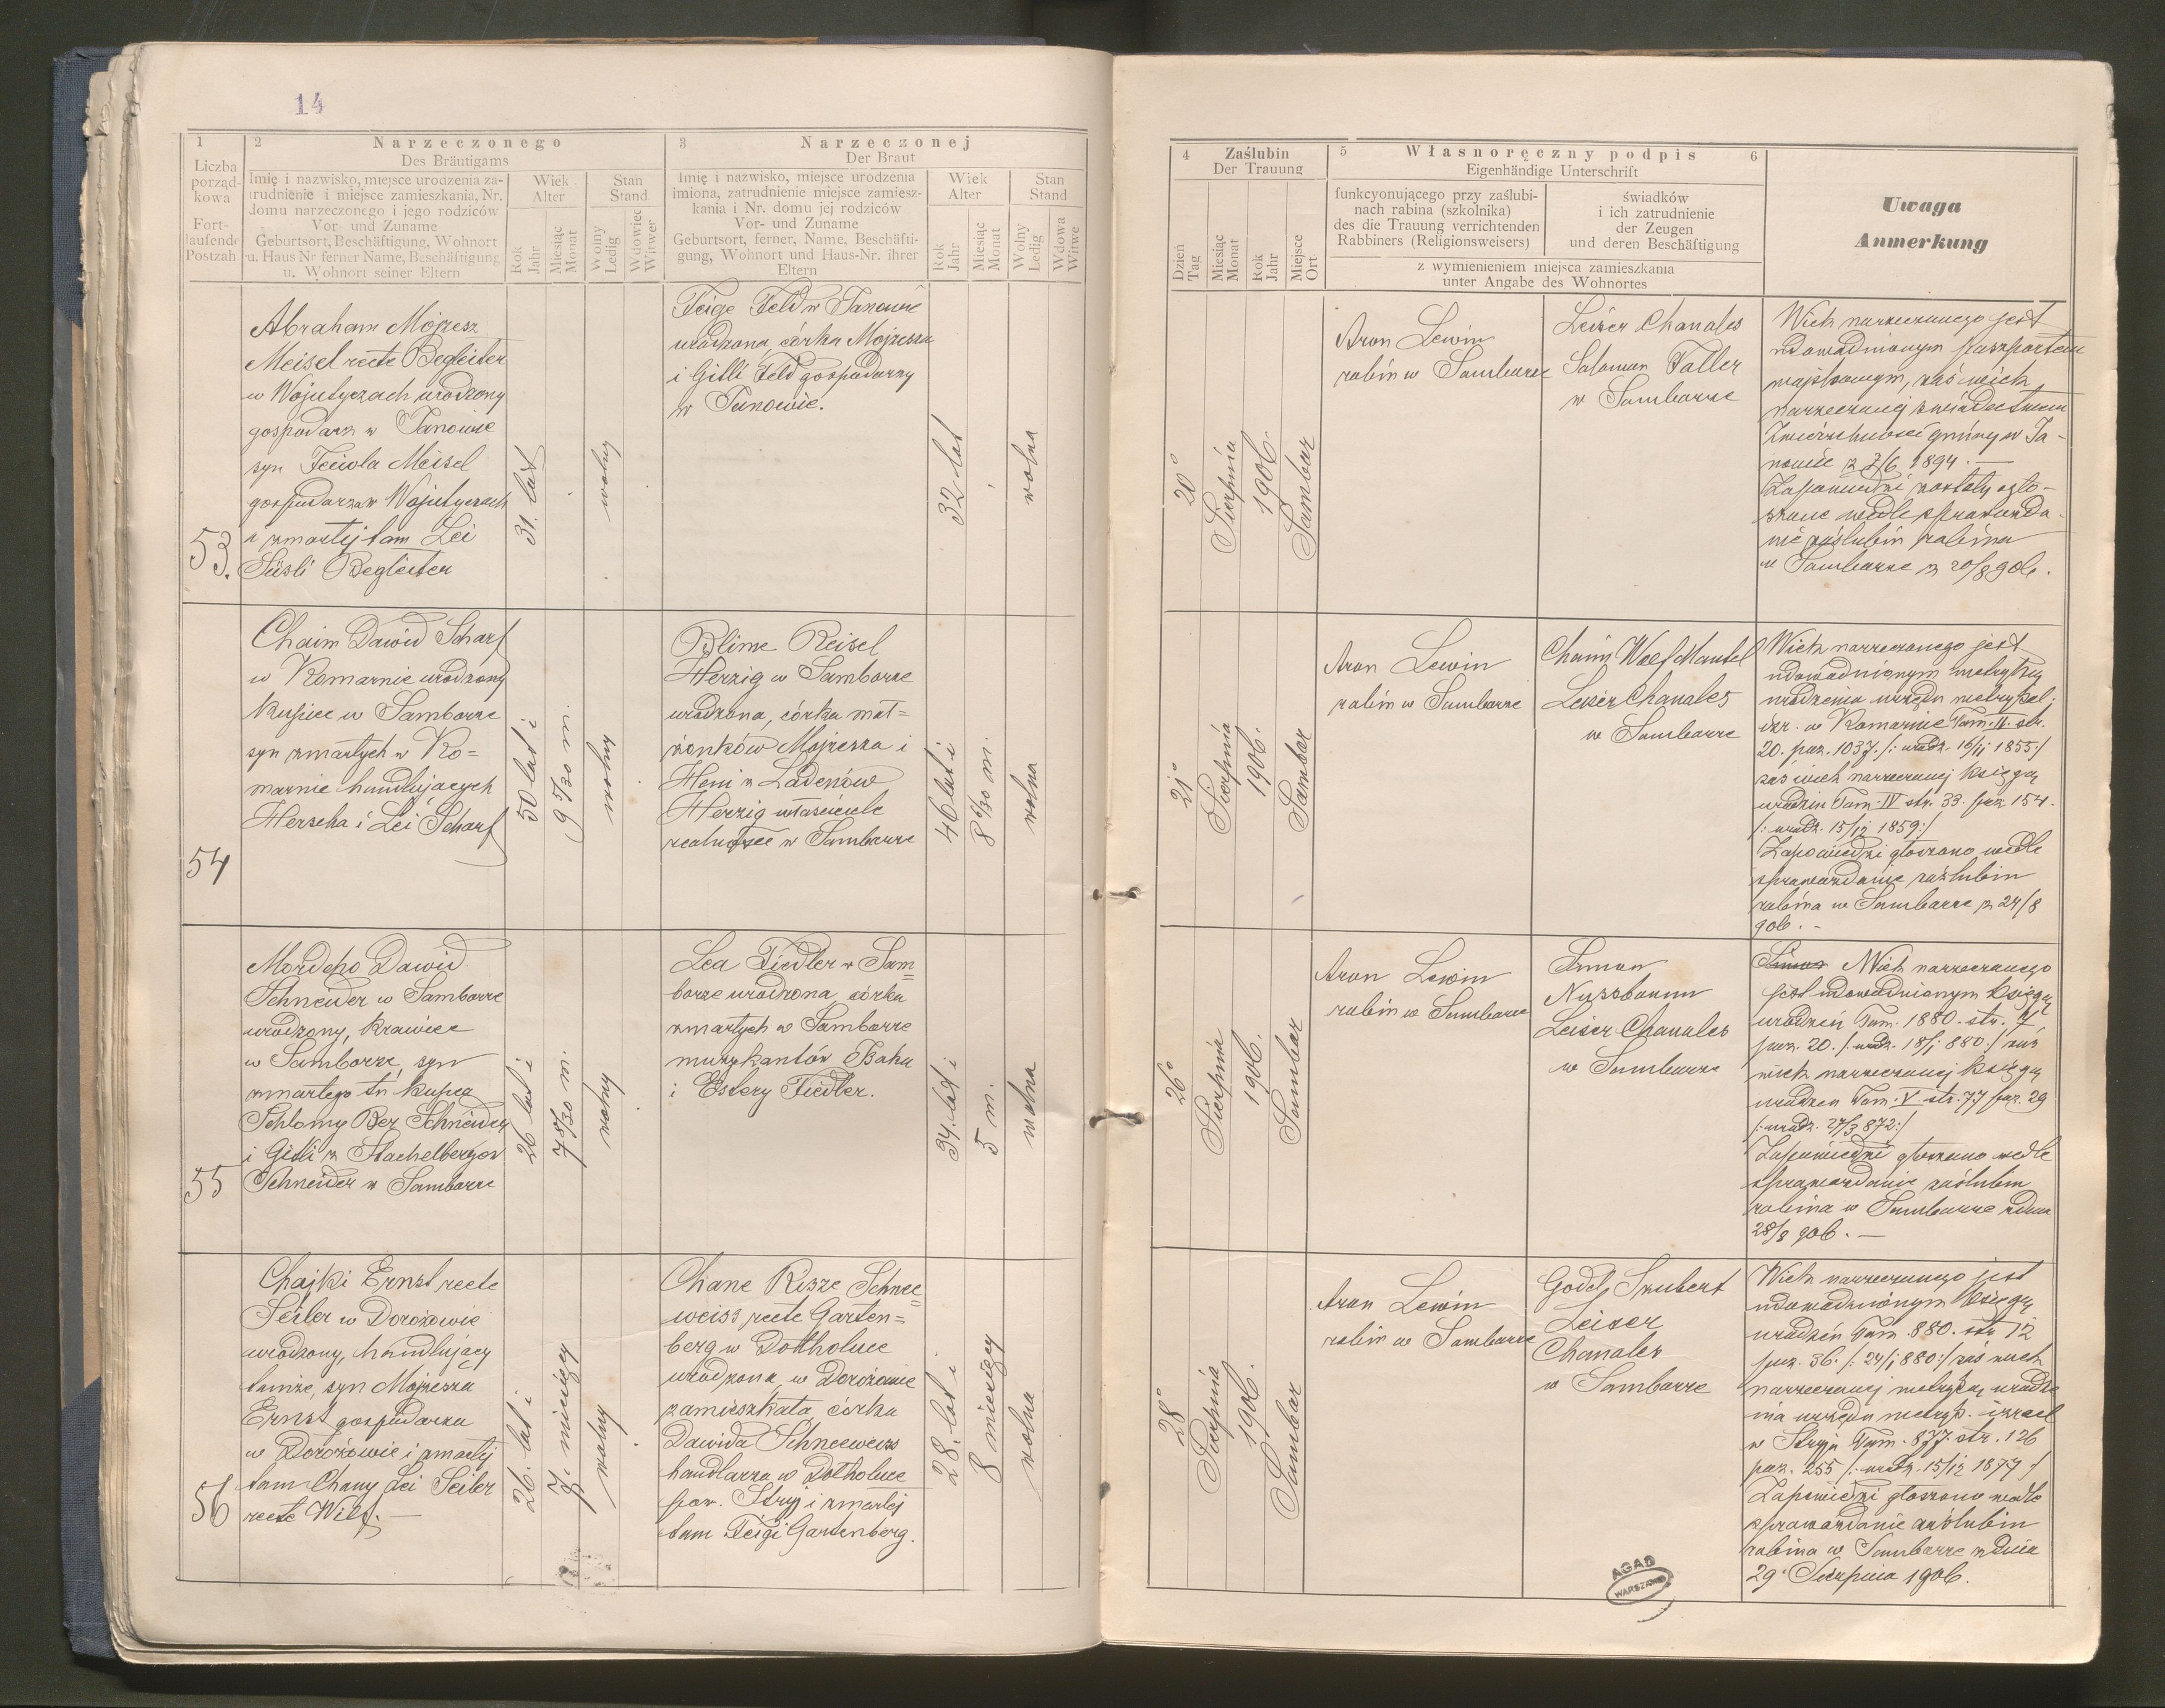 14
1
2
Narzeczonego
Des Bräutigams
3
Narzeczonej
Der Braut
Liczba
porząd-
kowa
Fort-
laufende
Postzah
Imię i nazwisko, miejsce urodzenia za-
trudnienie i miejsce zamieszkania, Nr.
domu narzeczonego i jego rodziców
Vor- und Zuname
Geburtsort, Beschäftigung, Wohnort
u. Haus Nr ferner Name, Beschäftigung
u. Wohnort seiner Eltern
Wiek
Alter
Rok
Jahr
Miesiąc
Monat
Stan
Stand
Wolny
Ledig
Wdowiec
Witwer
Imię i nazwisko, miejsce urodzenia
imiona, zatrudnienie miejsce zamiesz-
kania i Nr. domu jej rodziców
Vor- und Zuname
Geburtsort, ferner, Name, Beschäfti-
gung, Wohnort und Haus-Nr. ihrer
Eltern
Wiek
Alter
Rok
Jahr
Miesiąc
Monat
Stan
Stand
Wolny
Ledig
Wdowa
Witwe
4
Zaślubin
Der Trauung
Dzień
Tag
Miesiąc
Monat
Rok
Jahr
Miejsce
Ort
5
Własnoręczny podpis
6
Eigenhändige Unterschrift
funkcyonującego przy zaślubi-
nach rabina (szkolnika)
des die Trauung verrichtenden
Rabbiners (Religionsweisers)
świadków
i ich zatrudnienie
der Zeugen
und deren Beschäftigung
z wymienieniem miejsca zamieszkania
unter Angabe des Wohnortes
Uwaga
Anmerkung
53.
Abraham Mojżesz
Meisel recte Begleiter
w Wojutyczach urodzony
gospodarz w Janowie
syn Feiwla Meisel
gospodarza w Wojutyczach
i zmarłej tam Lei
Süsli Begleiter
31. lat
wolny
Feige Feld w Janowie
urodzona, córka Mojżesza
i Gitli Feld gospodarzy
w Janowie.
32 lat
wolna
20º
Sierpnia
1906.
Sambor
Aron Lewin
rabin w Samborze
Leiser Chanales
Salomon Faller
w Samborze
Wiek narzeczonego jest
udowadnionym paszportem
wojskowym, zaś wiek
narzeczonej świadectwem
Zwierzchności gminy w Ja-
nowie z 7/6 1894.—
Zapowiedzi zostały ogło-
szone wedle sprawozda-
nie zaślubin rabina
w Samborze z 20/8 906.
54
Chaim Dawid Scharf
w Komarnie urodzony
kupiec w Samborze
syn zmarłych w Ko=
marnie handlujących
Herscha i Lei Scharf
50 lat i
9 5/30 m.
wolny
Blime Reisel
Herzig w Samborze
urodzona, córka mał=
żonków Mojżesza i
Heni z Ladenów
Herzig właściciele
realności w Samborze
46 lat i
8 6/30 m.
wolna
21º
Sierpnia
1906.
Sambor
Aron Lewin
rabin w Samborze
Chaim Wolf Mantel
Leiser Chanales
w Samborze
Wiek narzeczonego jest
udowadnionym metryką
urodzenia urzędu metrykal.
izr. w Komarnie Tom. II. str.
20. poz. 1037. /: urodz. 16/11 1855:/
zaś wiek narzeczonej księgą
urodzin Tom. IV str. 33. poz 154.
/: urodz. 15/12 1859:/
Zapowiedzi głoszono wedle
sprawozdanie zaślubin
rabina w Samborze z 24/8
906. -
55
Mordcho Dawid
Schneider w Samborze
urodzony, krawiec
w Samborze, syn
zmarłego tu kupca
Schlomy Ber Schneider
i Gitli z Stachelbergów
Schneider w Samborze
26 lat i
7 8/30 m.
wolny
Lea Fiedler w Sam=
borze urodzona, córka
zmarłych w Samborze
muzykantów Isaka
i Estery Fiedler.
34. lat i
5 m.
wolna
26º
Sierpnia
1906.
Sambor
Aron Lewin
rabin w Samborze
Simon
Nussbaum
Leiser Chanales
w Samborze
Wiek narzeczonego
jest udowadnionym księgą
urodzeń Tom. 1880. str. 7
poz. 20. /: urodz. 18/1 880:/ zaś
wiek narzeczonej księgą
urodzeń Tom. V. str. 77 poz. 29
/: urodz. 27/3 872:/
Zapowiedzi głoszono wedle
sprawozdanie zaślubin
rabina w Samborze z dnia
28/8 906. —
56
Chajki Ernst recte
Seiler w Dorożowie
urodzony, handlujący
tamże, syn Mojżesza
Ernst gospodarza
w Dorożowie i zmarłej
tam Chany Lei Seiler
recte Wilf. —
26. lat i
7. miesięcy
wolny
Chane Risze Schnee=
weiss recte Garten=
berg w Dołhołuce
urodzona, w Dorożowie
zamieszkała córka
Dawida Schneeweiss
handlarza w Dołhołuce
pow. Stryj i zmarłej
tam Feigi Gartenberg.
28. lat i
8 miesięcy
wolna
28º
Sierpnia
1906.
Sambor
Aron Lewin
rabin w Samborze
Godel Skubert
Leiser
Chanales
w Samborze
Wiek narzeczonego jest
udowadnionym księgą
urodzeń Tom. 880. str 12
poz. 36. /: 24/1 880:/ zaś wiek
narzeczonej metryką urodze
nia urzędu metryk. izrael
w Stryju Tom. 877. str. 126
poz. 255 /: urodz. 15/12 1877:/
Zapowiedzi głoszono wedle
sprawozdanie zaślubin
rabina w Samborze z dnia
29. Sierpnia 1906.
AGAD
WARSZAWA